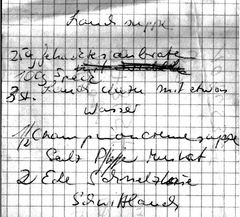 Lauch suppe
anbraten
100 g Speck
3 St. Lauch mit etwas
Wasser
1/2 Champignoncremesuppe
Salz Pfeffer Muskat
2 Ecke Schmelzkäse
Schnittlauch